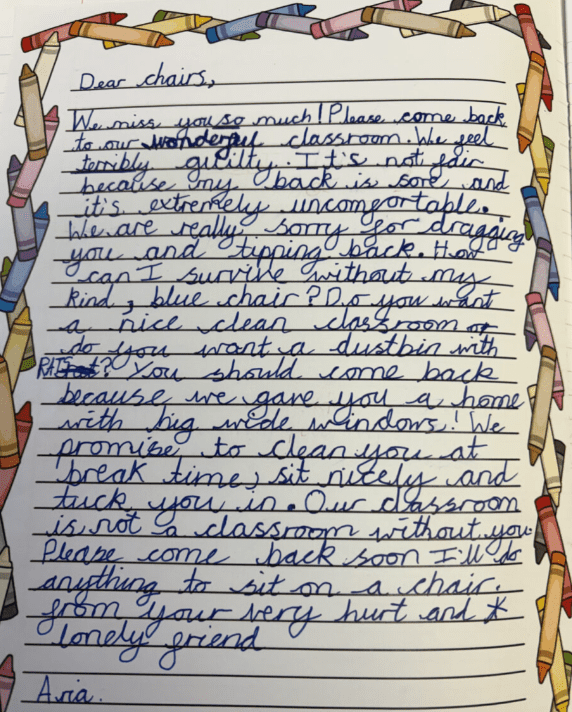 Dear chairs,
We miss you so much! Please come back
to our wonderful classroom. We feel
terribly guilty. It's not fair
because my back is sore and
it's extremely uncomfortable.
We are really sorry for dragging
you and tipping back. How
can I survive without my
kind, blue chair? Do you want
a nice clean classroom or
do you want a dustbin with
RATS? You should come back
because we gave you a home
with big wide windows! We
promise to clean you at
break time, sit nicely and
tuck you in. Our classroom
is not a classroom without you.
Please come back soon I'll do
anything to sit on a chair.
from your very hurt and *
lonely friend
Aria.